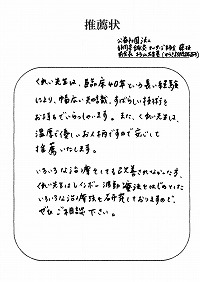 推薦状
くれい先生は、臨床40年という長い経験
により、幅広い知識、すばらしい技術を
お持ちでいらっしゃいます。また、くれい先生は、
温厚で優しいお人柄ですので安心して
推薦いたします。
いろいろな治療をしても改善されなかった方、
くれい先生はレインボー波動療法をはじめとした
いろいろな治療法を研究しておりますので、
ぜひご相談下さい。